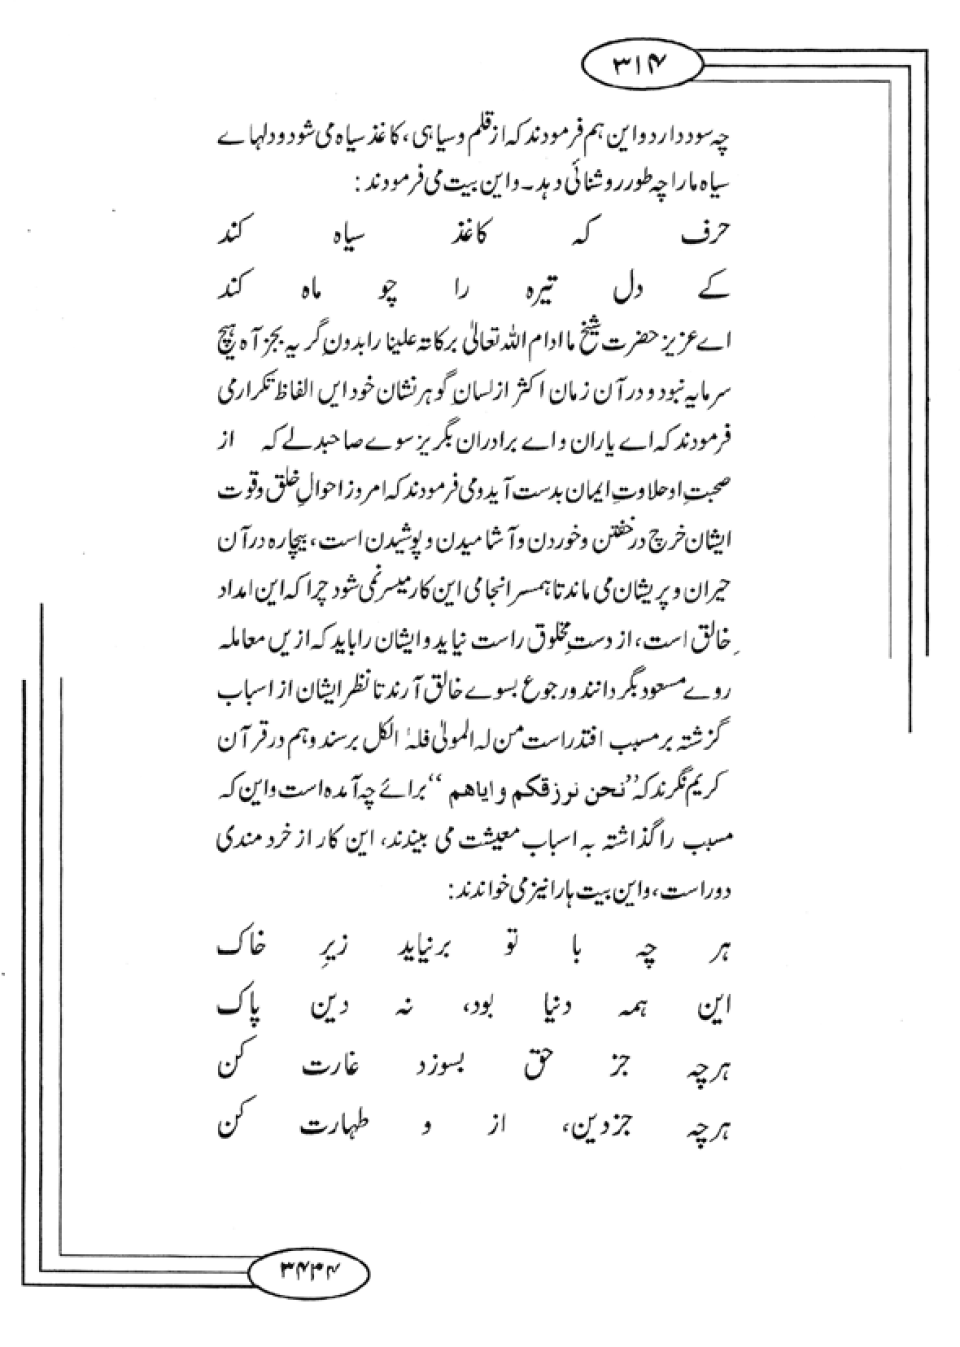 ۳۱۴
چہ سود دارد و این ہم فرمودند کہ از قلم و سیاہی، کاغذ سیاہ می شود و دلہاے
سیاہ ما را چہ طور روشنائی دہد۔ و این بیت می فرمودند:
حرف کہ کاغذ سیاہ کند
کے دل تیرہ را چو ماہ کند
اے عزیز حضرت شیخ ما ادام اللہ تعالیٰ برکاتہ علینا را بدونِ گریہ بجز آہ ہیچ
سرمایہ نبود و در آن زمان اکثر از لسانِ گوہر نشان خود ایں الفاظ تکرار می
فرمودند کہ اے یاران و اے برادران بگریز سوے صاحبدلے کہ از
صحبتِ او حلاوتِ ایمان بدست آید و می فرمودند کہ امروز احوالِ خلق و قوت
ایشان خرچ در خفتن و خوردن و آشامیدن و پوشیدن است، بیچارہ در آن
حیران و پریشان می ماند تا ہمسر انجامی این کار میسر نمی شود چرا کہ این امداد
خالق است، از دستِ مخلوق راست نیاید و ایشان را باید کہ ازیں معاملہ
روے مسعود بگردانند و رجوع بسوے خالق آرند تا نظر ایشان از اسباب
گزشتہ بر مسبب افتد راست من لہ المولیٰ فلہٗ الکل برسند و ہم در قرآن
کریم نگرند کہ ”نحن نرزقکم و ایاھم“ برائے چہ آمدہ است و این کہ
مسبب را گذاشتہ بہ اسباب معیشت می بینند، این کار از خرد مندی
دور است، و این بیت ہا را نیز می خواندند:
ہر چہ با تو برنیاید زیرِ خاک
این ہمہ دنیا بود، نہ دین پاک
ہرچہ جز حق بسوزد غارت کن
ہرچہ جز دین، از و طہارت کن
۳۴۳۴